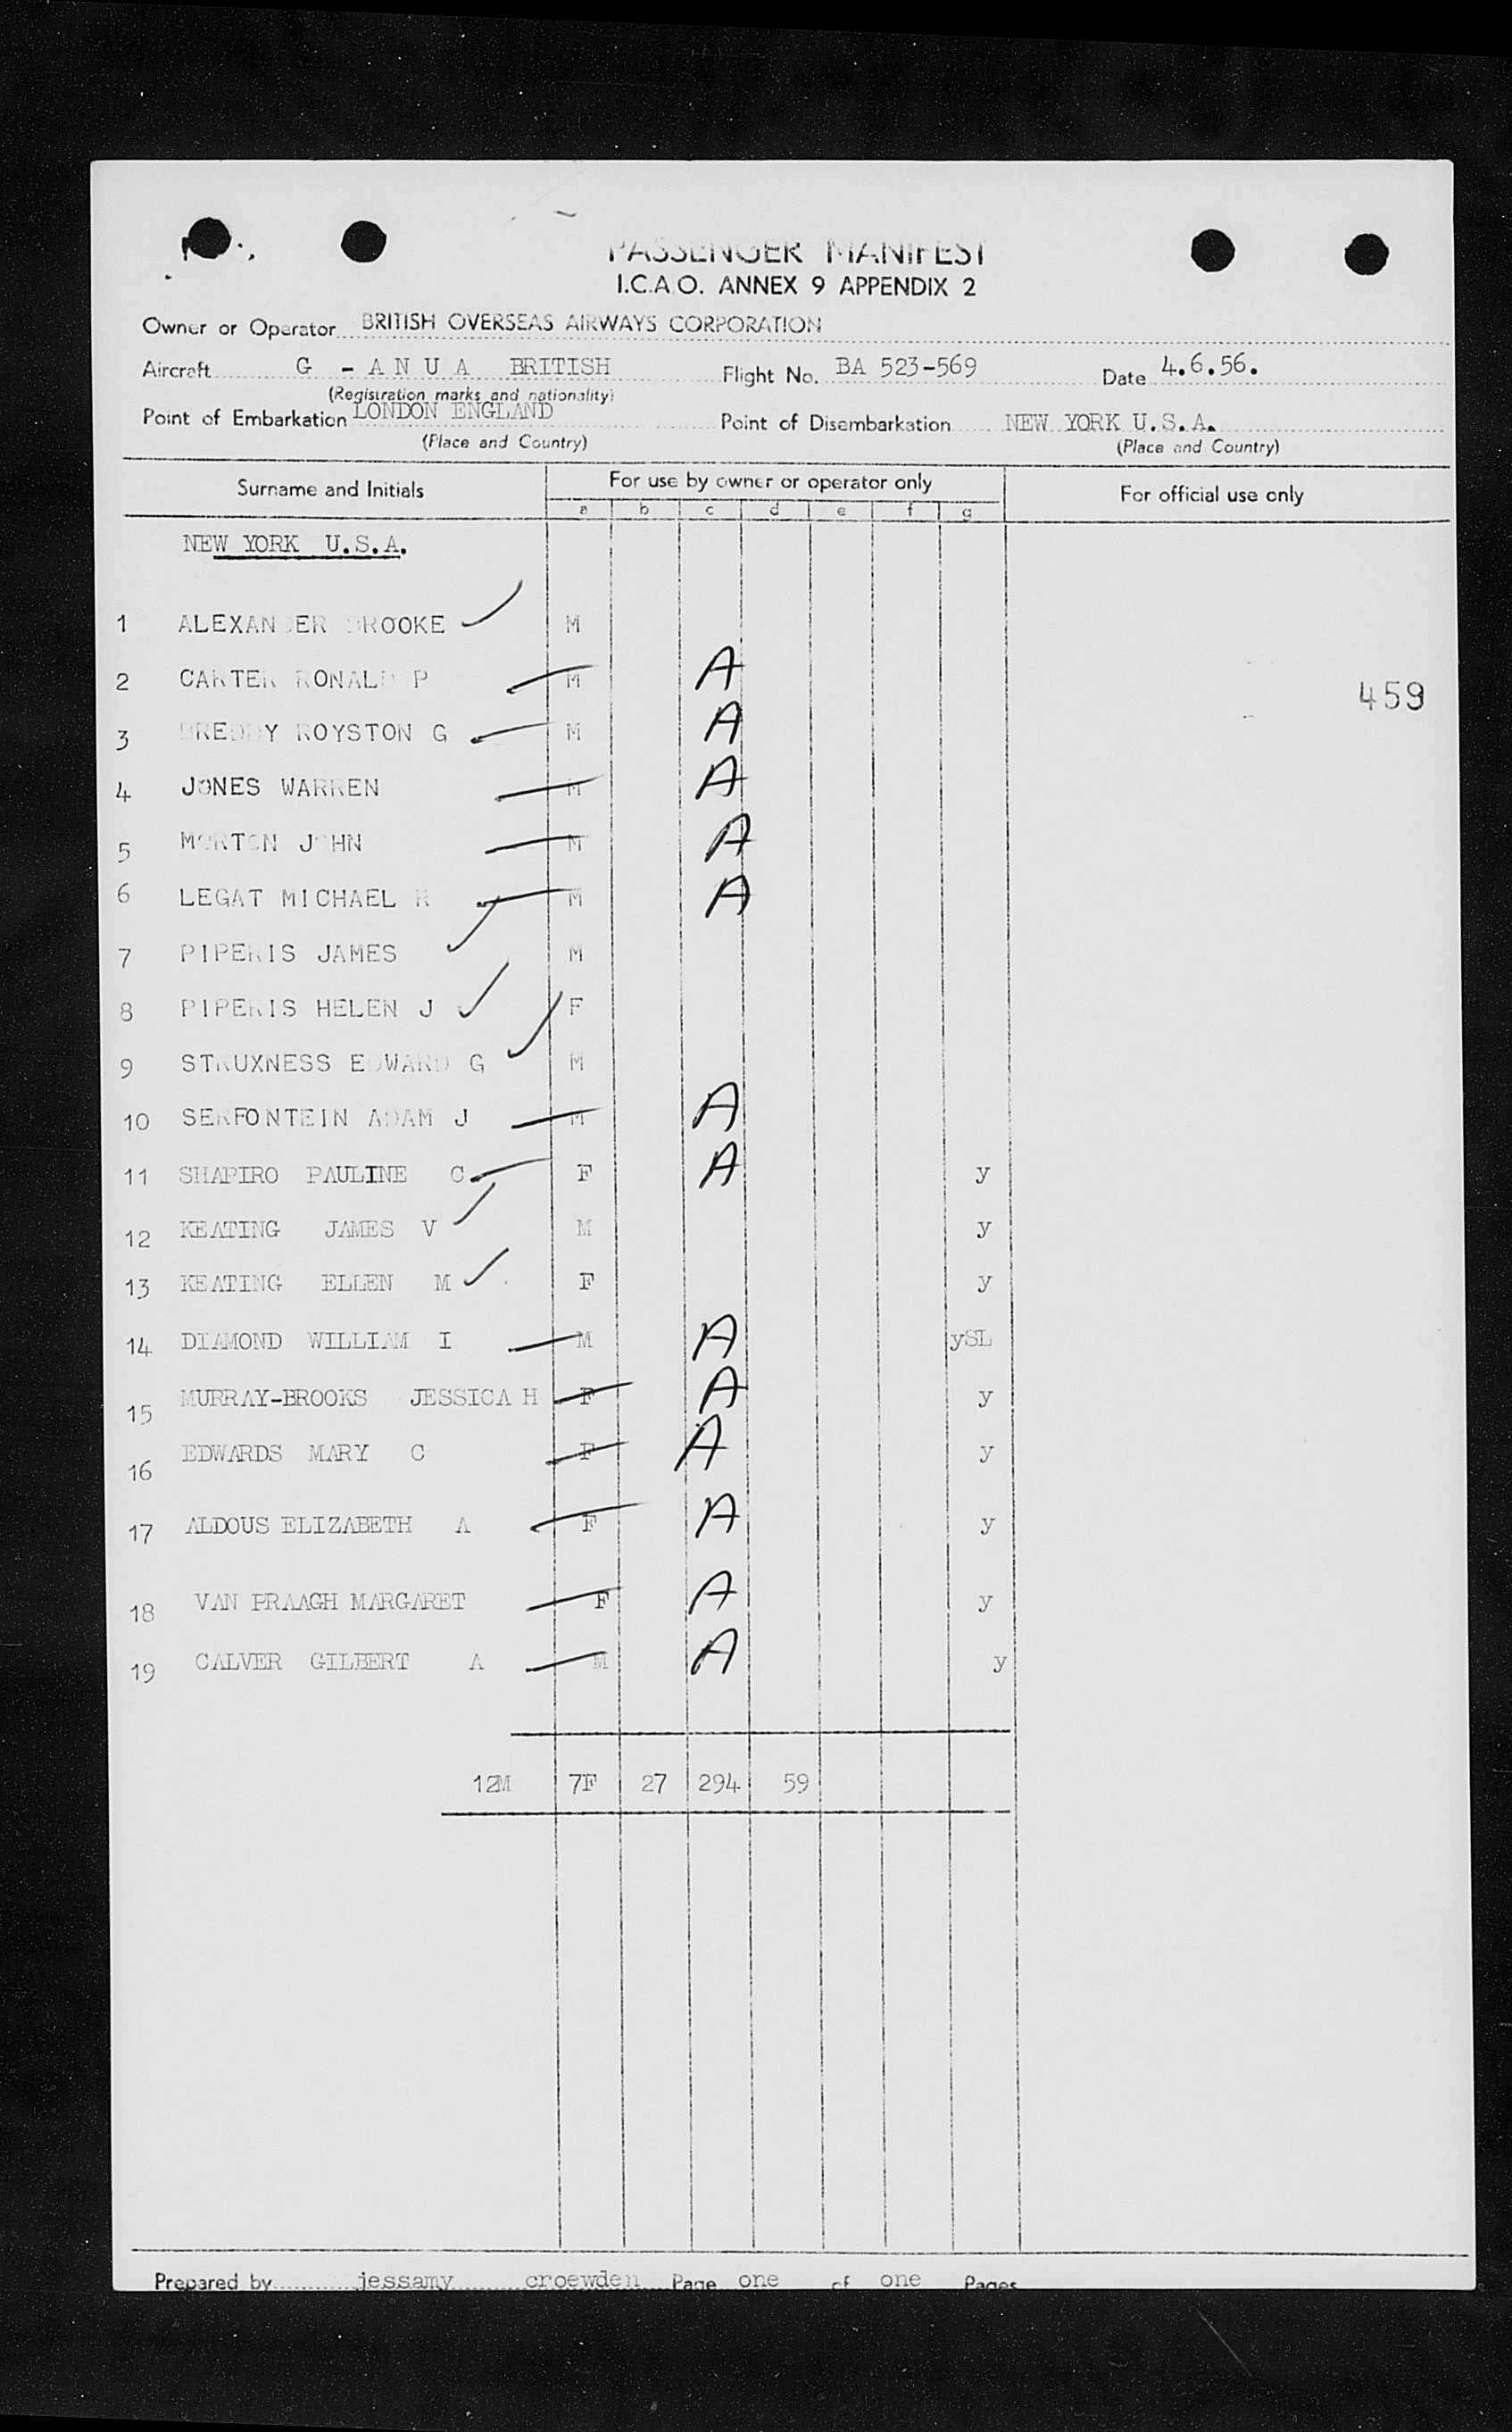 PASSENGER MANIFEST
I.C.A.O. ANNEX 9 APPENDIX 2
Owner or Operator BRITISH OVERSEAS AIRWAYS CORPORATION
Aircraft G - A N U A BRITISH Flight No. BA 523-569 Date 4.6.56.
(Registration marks and nationality)
Point of Embarkation LONDON ENGLAND Point of Disembarkation NEW YORK U.S.A.
(Place and Country) (Place and Country)
Surname and Initials For use by owner or operator only For official use only
a b c d e f g
NEW YORK U.S.A.
1 ALEXANDER BROOKE M
2 CARTER RONALD P M A
459
3 BREDDY ROYSTON G M A
4 JONES WARREN M A
5 MORTON JOHN M A
6 LEGAT MICHAEL R M A
7 PIPERIS JAMES M
8 PIPERIS HELEN J F
9 STRUXNESS EDWARD G M
10 SERFONTEIN ADAM J M A
11 SHAPIRO PAULINE C F A y
12 KEATING JAMES V M y
13 KEATING ELLEN M F y
14 DIAMOND WILLIAM I M A ySL
15 MURRAY-BROOKS JESSICA H F A y
16 EDWARDS MARY C F A y
17 ALDOUS ELIZABETH A F A y
18 VAN PRAAGH MARGARET F A y
19 CALVER GILBERT A M A y
12M 7F 27 294 59
Prepared by jessamy croewden Page one of one Pages